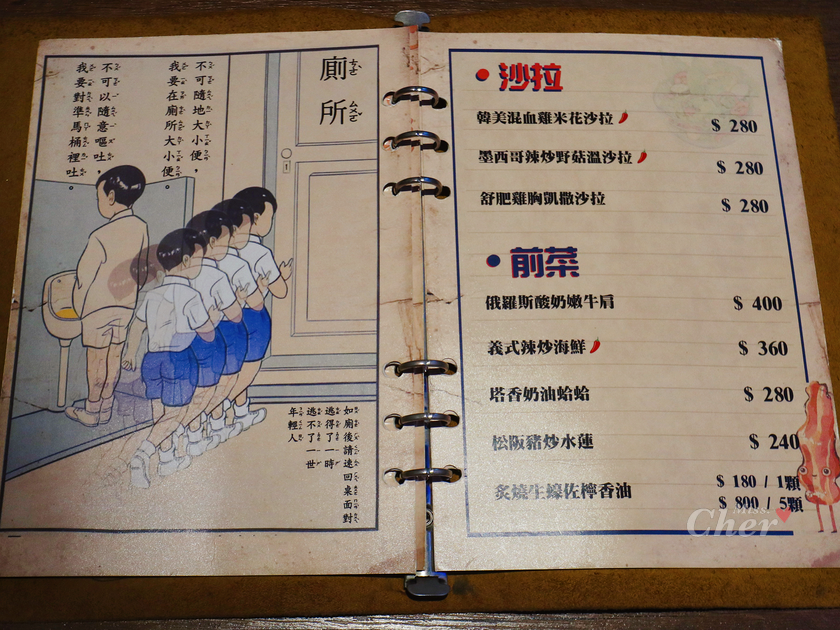 廁所
不可隨地大小便，
我要在廁所大小便。
不可以隨意嘔吐，
我要對準馬桶裡吐。
如廁後請速回桌面對
逃得了一時
逃不了一世
年輕人
沙拉
韓美混血雞米花沙拉 $ 280
墨西哥辣炒野菇溫沙拉 $ 280
舒肥雞胸凱撒沙拉 $ 280
前菜
俄羅斯酸奶嫩牛肩 $ 400
義式辣炒海鮮 $ 360
塔香奶油蛤蛤 $ 280
松阪豬炒水蓮 $ 240
炙燒生蠔佐檸香油 $ 180 / 1顆
$ 800 / 5顆
Miss.
Cher